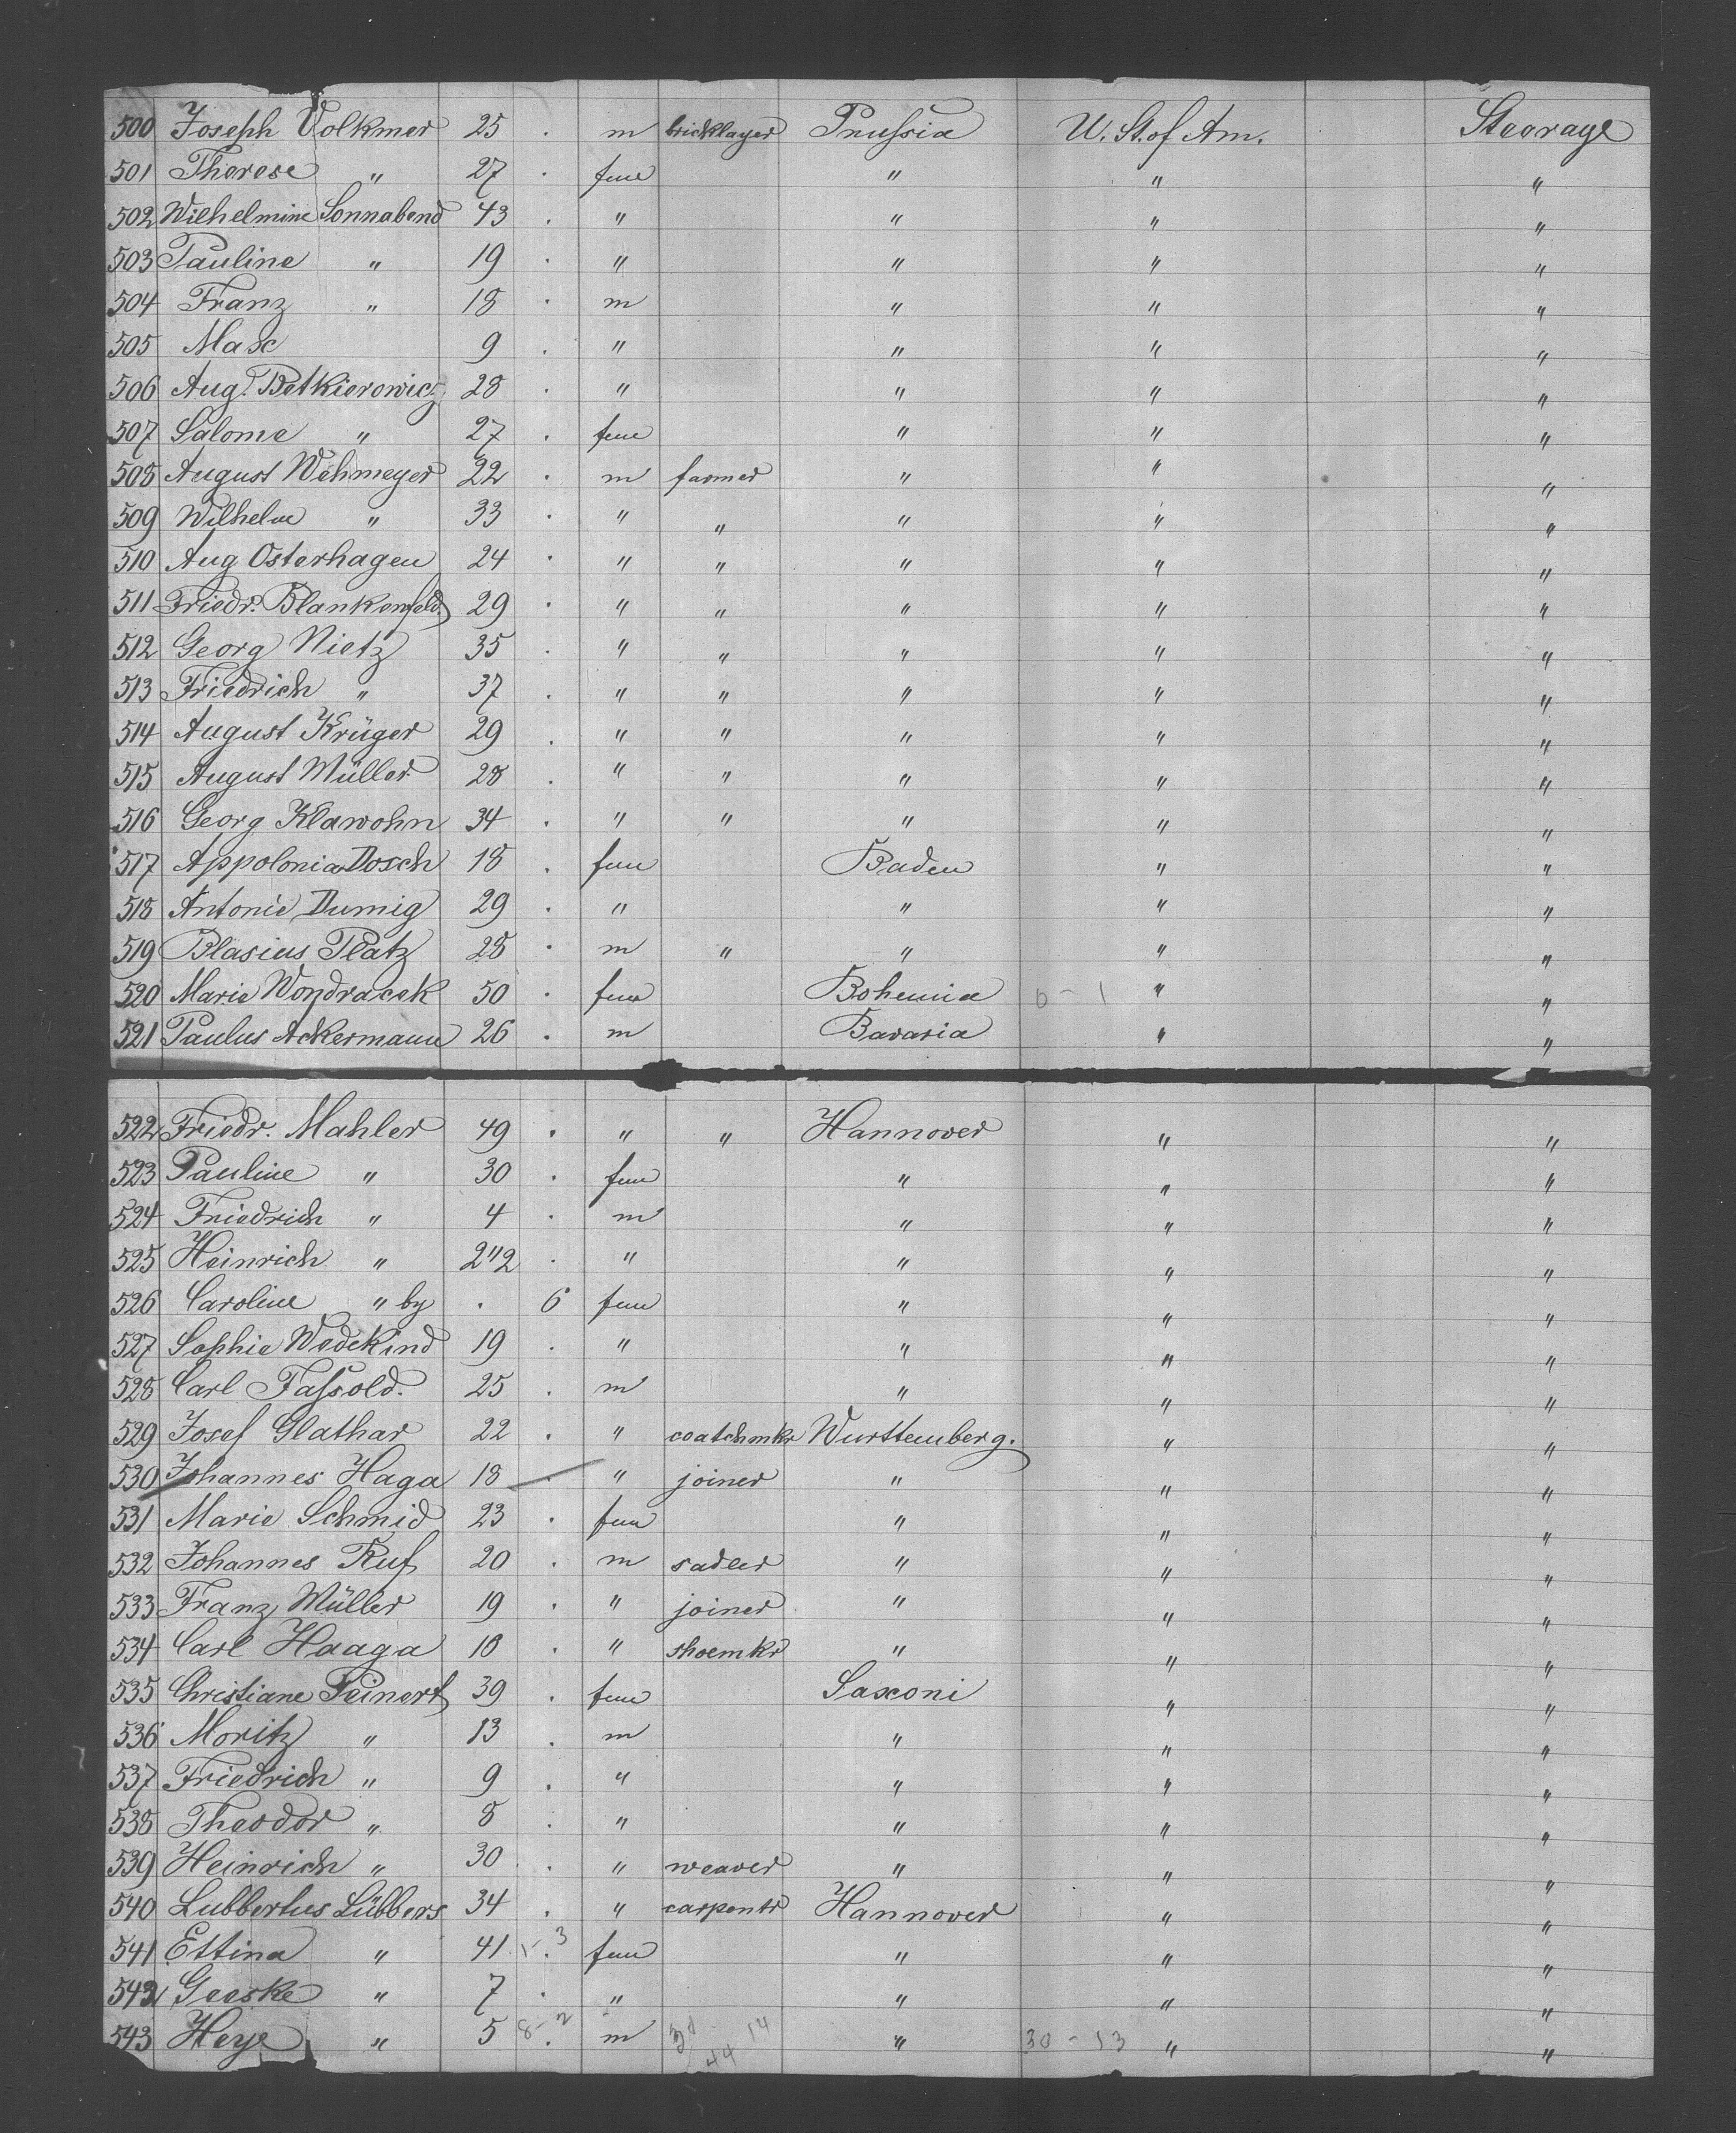 500 Joseph Volkmer 25 . m bricklayer Prussia U. St. of Am. Stearage
501 Therese " 27 . fem " " "
502 Wilhelmine Sonnabend 43 . " " " "
503 Pauline " 19 . " " " "
504 Franz " 18 . m " " "
505 Max 9 . " " " "
506 Aug. Betkierowicz 28 . " " " "
507 Salome " 27 . fem " " "
508 August Wehmeyer 22 . m farmer " " "
509 Wilhelm " 33 . " " " " "
510 Aug Osterhagen 24 . " " " " "
511 Friedr. Blankenfeld 29 . " " " " "
512 Georg Nietz 35 . " " " " "
513 Friedrich " 37 . " " " " "
514 August Krüger 29 . " " " " "
515 August Müller 28 . " " " " "
516 Georg Klawohn 34 . " " " " "
517 Appolonia Dosch 18 . fem Baden " "
518 Antonie Dumig 29 . " " " "
519 Blasius Platz 28 . m " " " "
520 Marie Wondracek 50 . fem Bohemia 0 - 1 " "
521 Paulus Ackermann 26 . m Bavaria " "
522 Friedr. Mahler 49 . " " Hannover " "
523 Pauline " 30 . fem " " "
524 Friedrich " 4 . m " " "
525 Heinrich " 2"2 . " " " "
526 Caroline " by . 6 fem " " "
527 Sophie Wedekind 19 . " " " "
528 Carl Fassold. 25 . m " " "
529 Josef Glathar 22 . " coatchmkr Wurttemberg. " "
530 Johannes Haga 18 . " joiner " " "
531 Marie Schmid 23 . fem " " "
532 Johannes Ruf 20 . m sadler " " "
533 Franz Müller 19 . " joiner " " "
534 Carl Haaga 18 . " shoemkr " " "
535 Christiane Peinert 39 . fem Saxoni " "
536 Moritz " 13 . m " " "
537 Friedrich " 9 . " " " "
538 Theodor " 8 . " " " "
539 Heinrich " 30 . " weaver " " "
540 Lubbertus Lübbers 34 . " carpentr Hannover " "
541 Ettina " 41 1 - 3 fem " " "
542 Geeske " 7 . " " " "
543 Heye " 5 8 - 2 m 44 14 " 30 - 13 " "